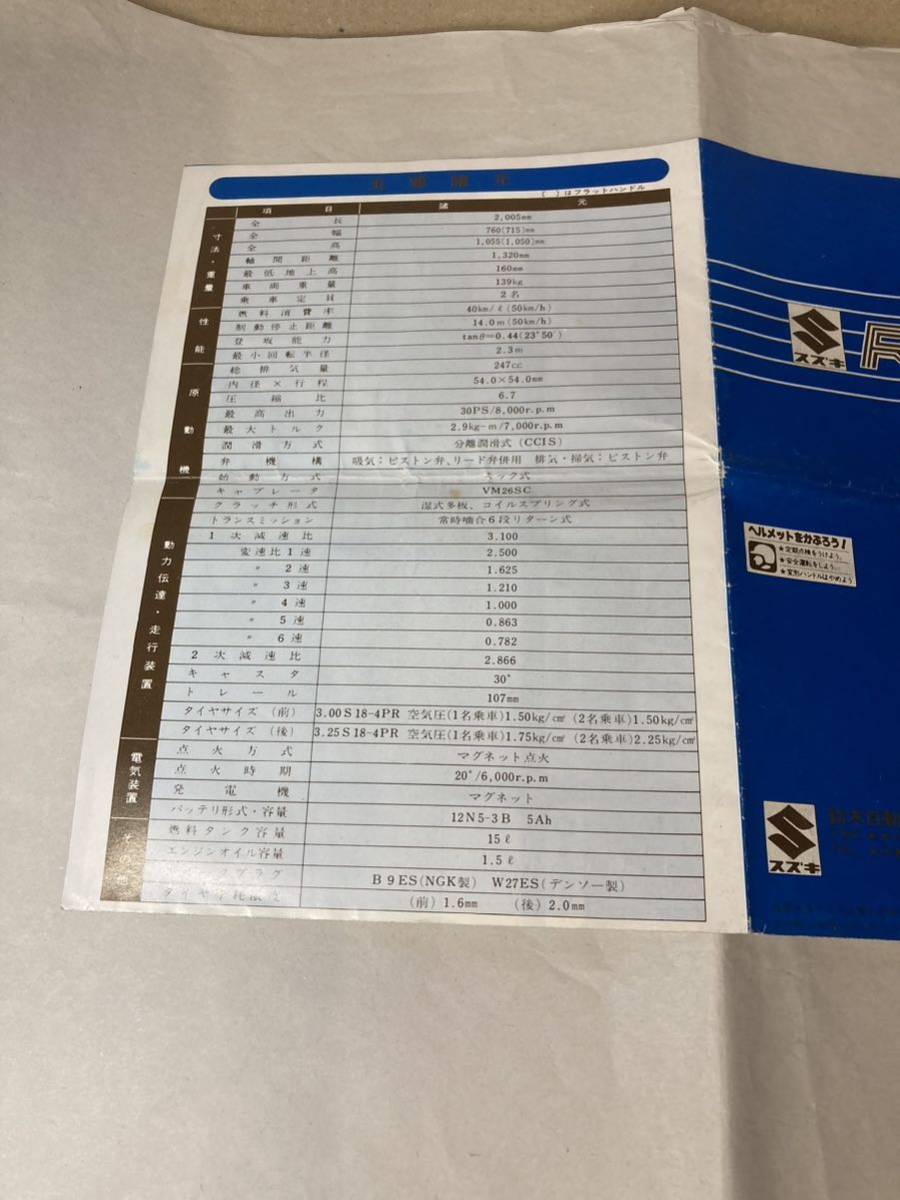 主要諸元
( )はフラットハンドル
項 目 諸 元
寸法・重量
全 長 2,005mm
全 幅 760(715)mm
全 高 1,055(1,050)mm
軸間距離 1,320mm
最低地上高 160mm
車両重量 139kg
乗車定員 2名
性能
燃料消費率 40km/ℓ(50km/h)
制動停止距離 14.0m(50km/h)
登坂能力 tanθ=0.44(23°50′)
最小回転半径 2.3m
原動機
総排気量 247cc
内径×行程 54.0×54.0mm
圧縮比 6.7
最高出力 30PS/8,000r.p.m
最大トルク 2.9kg-m/7,000r.p.m
潤滑方式 分離潤滑式(CCIS)
弁機構 吸気:ピストン弁、リード弁併用 排気・掃気:ピストン弁
始動方式 キック式
キャブレータ VM26SC
動力伝達・走行装置
クラッチ形式 湿式多板、コイルスプリング式
トランスミッション 常時噛合6段リターン式
1次減速比 3.100
変速比1速 2.500
〃 2速 1.625
〃 3速 1.210
〃 4速 1.000
〃 5速 0.863
〃 6速 0.782
2次減速比 2.866
キャスタ 30°
トレール 107mm
タイヤサイズ(前) 3.00S18-4PR 空気圧(1名乗車)1.50kg/㎠ (2名乗車)1.50kg/㎠
タイヤサイズ(後) 3.25S18-4PR 空気圧(1名乗車)1.75kg/㎠ (2名乗車)2.25kg/㎠
電気装置
点火方式 マグネット点火
点火時期 20°/6,000r.p.m
発電機 マグネット
バッテリ形式・容量 12N5-3B 5Ah
その他
燃料タンク容量 15ℓ
エンジンオイル容量 1.5ℓ
プラグ B9ES(NGK製) W27ES(デンソー製)
タイヤ 限度 (前)1.6mm (後)2.0mm
スズキ
R
ヘルメットをかぶろう!
★定期点検をうけよう。
★安全運転をしよう。
★変形ハンドルはやめよう
スズキ
鈴木自動